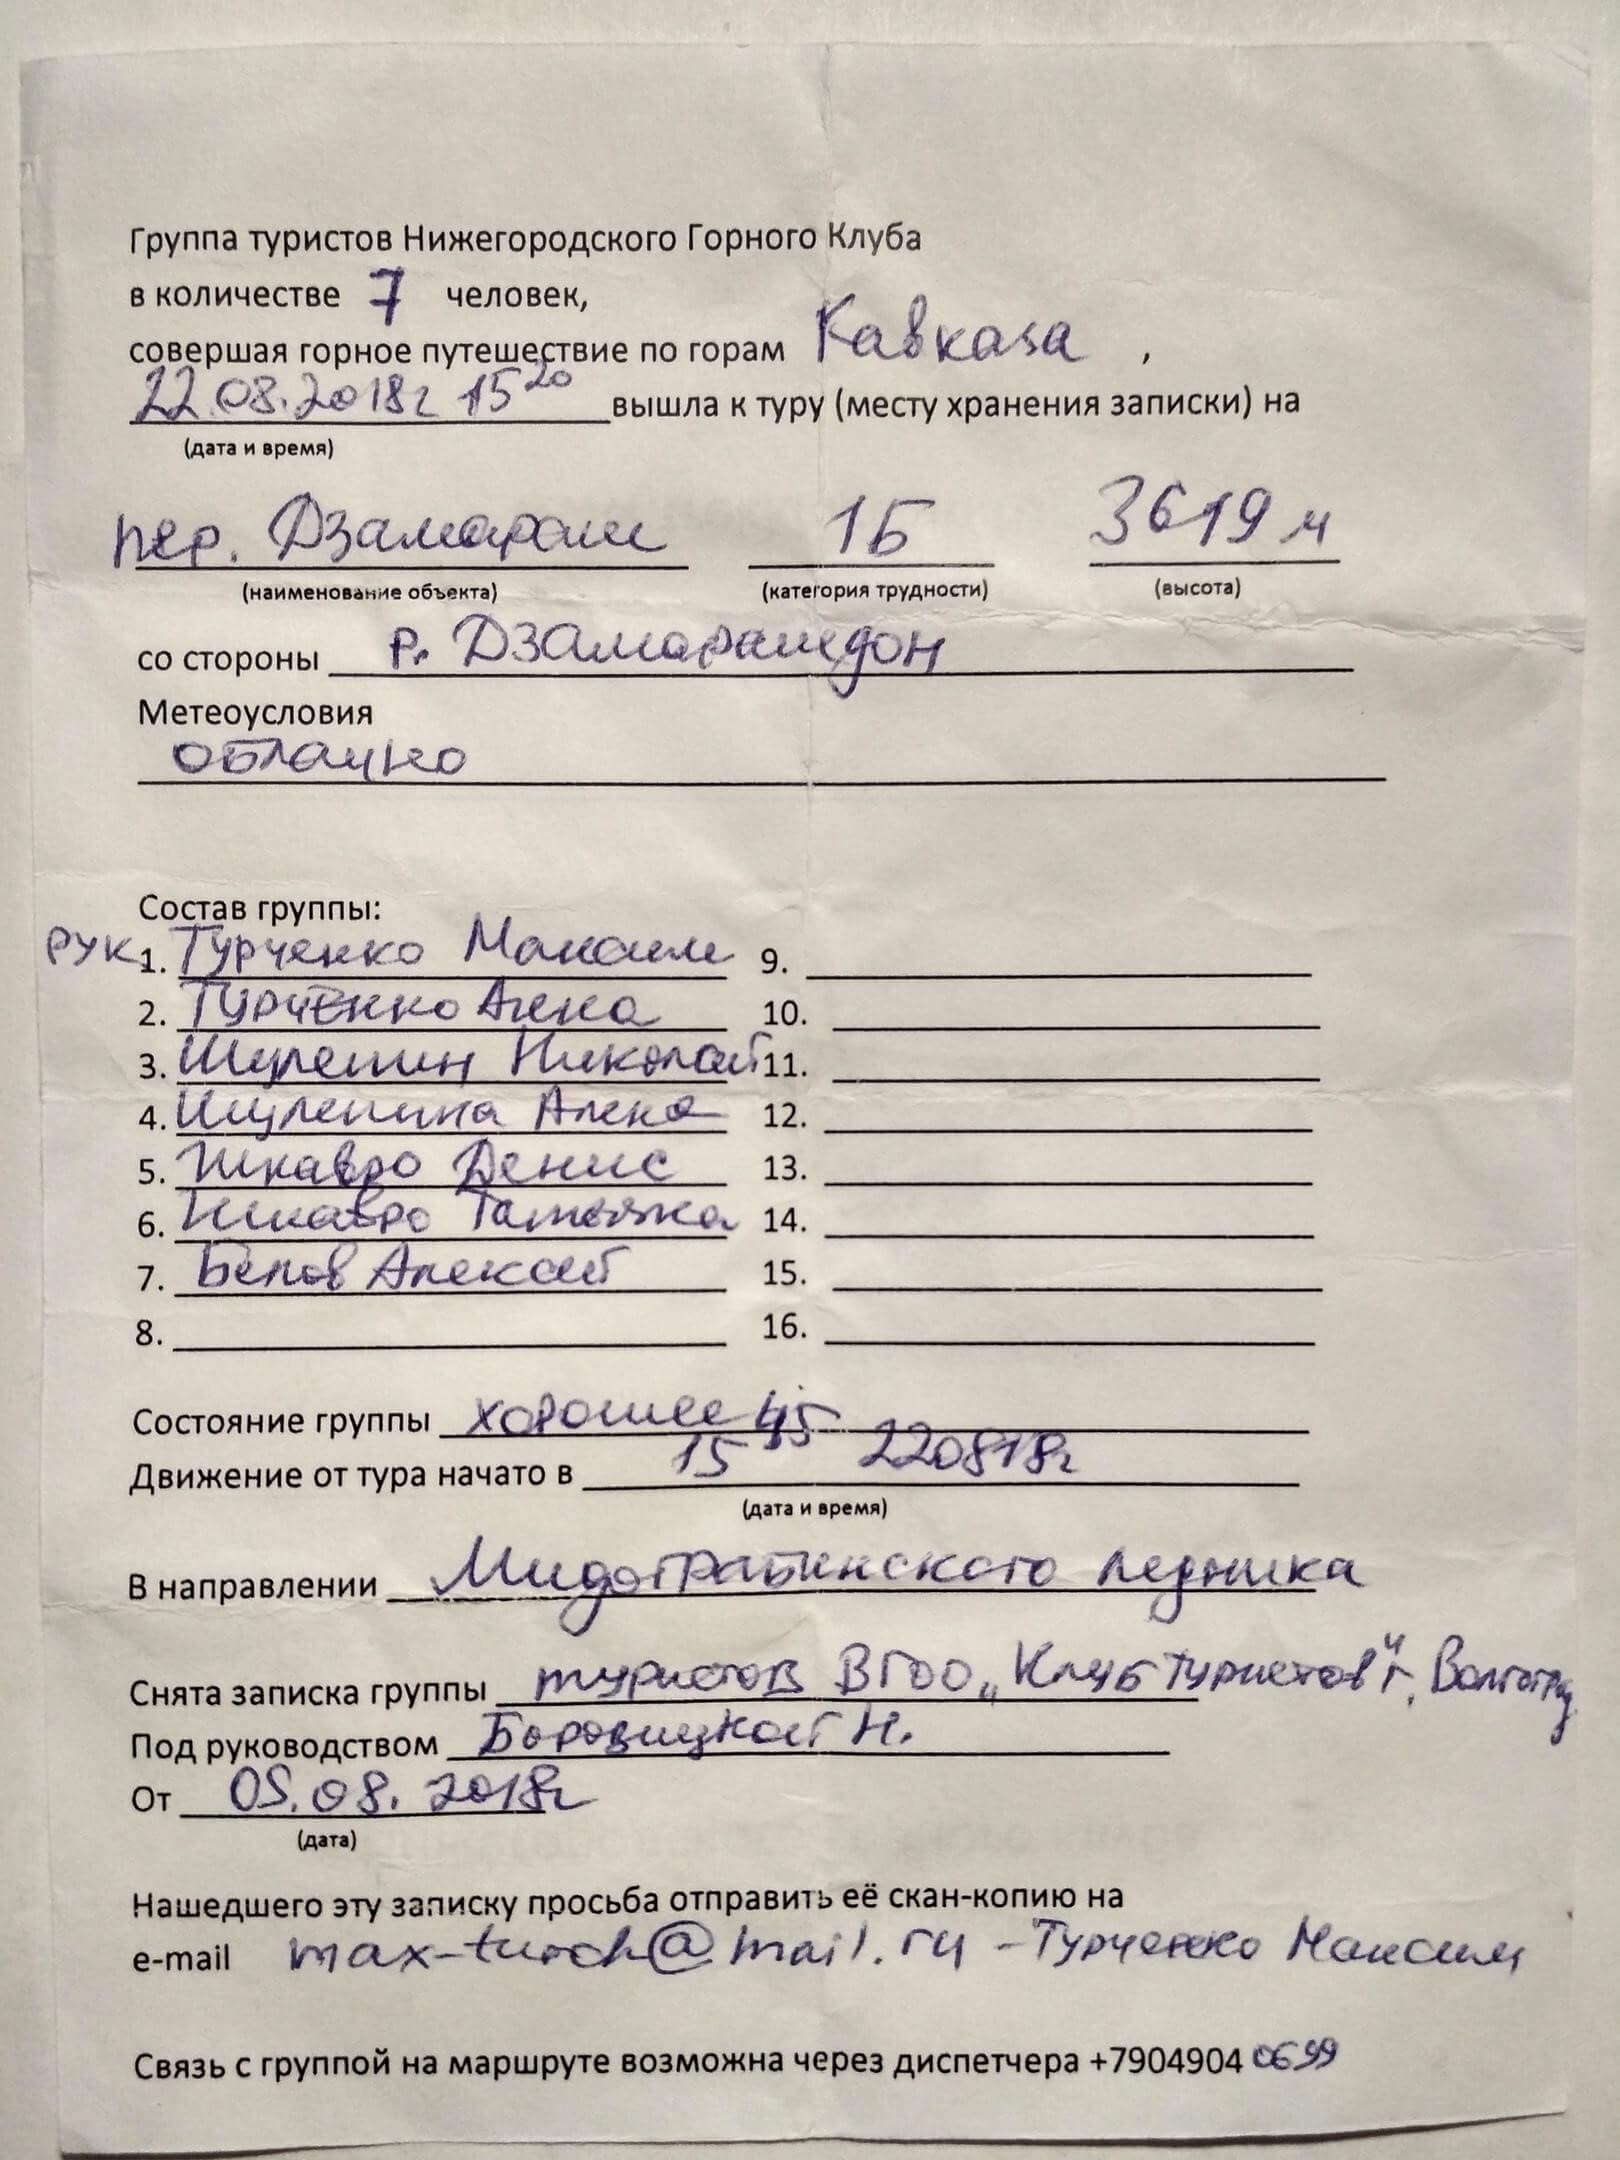 Группа туристов Нижегородского Горного Клуба
в количестве 7 человек,
совершая горное путешествие по горам Кавказа ,
22.08.2018г 15 20 вышла к туру (месту хранения записки) на
(дата и время)
пер. Дзамараш 1Б 3619 м
(наименование объекта) (категория трудности) (высота)
со стороны р. Дзамарашдон
Метеоусловия
облачно
Состав группы:
рук 1. Турченко Максим 9.
2. Турченко Алена 10.
3. Шулепин Николай 11.
4. Шулепина Алена 12.
5. Шкавро Денис 13.
6. Шкавро Татьяна 14.
7. Белов Алексей 15.
8. 16.
Состояние группы хорошее
Движение от тура начато в 15 45 220818г
(дата и время)
В направлении Мидаграбинского ледника
Снята записка группы туристов ВГОО „Клуб туристов" г. Волгоград
Под руководством Боровицкой Н.
От 05.08.2018г
(дата)
Нашедшего эту записку просьба отправить её скан-копию на
e-mail max-turch@mail.ru - Турченко Максим
Связь с группой на маршруте возможна через диспетчера +7904904 0699